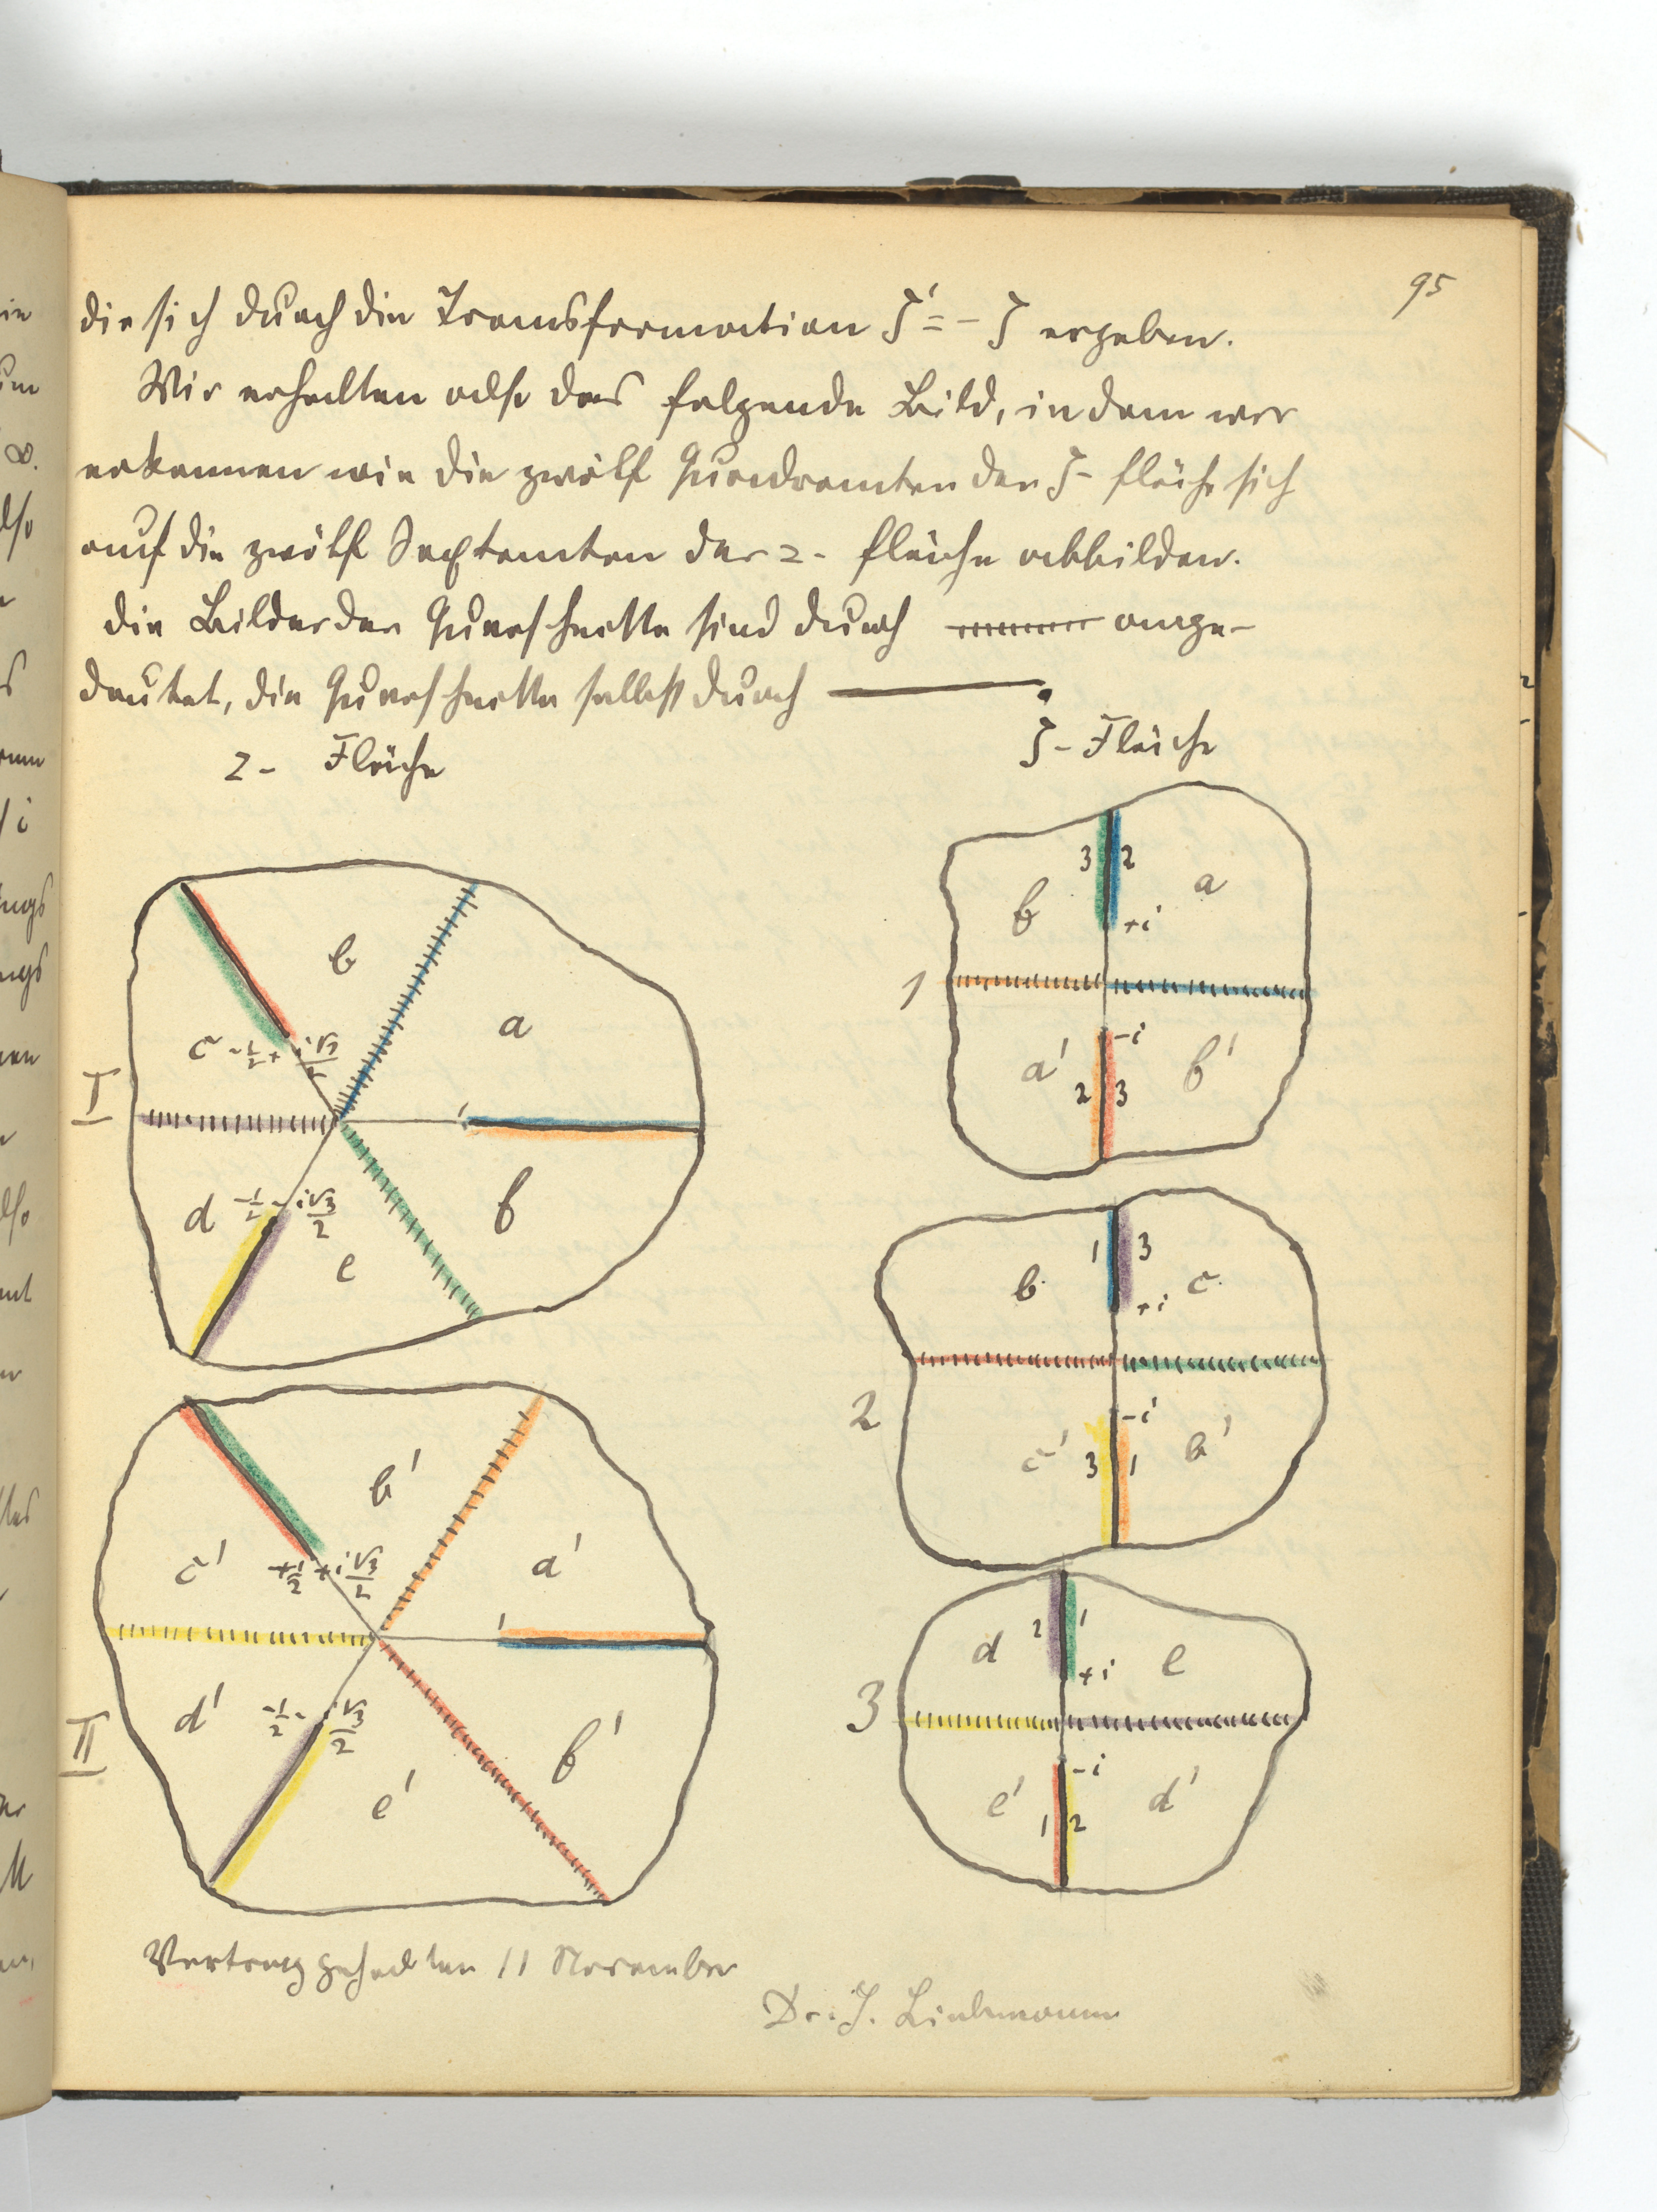 95
die sich durch die Transformation ζ' = - ζ ergeben.
Wir erhalten also das folgende Bild, in dem wir
erkennen wie die zwölf Quadranten der ζ- fläche sich
auf die zwölf Sextanten der z- fläche abbilden.
die Bilder der Querschnitte sind durch ange-
deutet, die Querschnitte selbst durch
z- Fläche
ζ- Fläche
b
a
c -1/2 + i√3/2
1
I
d -1/2 - i√3/2
e
f
3 2
b a
+i
1
-i
a' f'
2 3
1 3
b c
+i
2
-i
c' b'
3 1
b'
a'
c' +1/2 + i√3/2
1
II
d' -1/2 - i√3/2
e'
f'
2 1
d e
+i
3
-i
e' d'
1 2
Vortrag gehalten 11 November
Dr. J. Liebmann